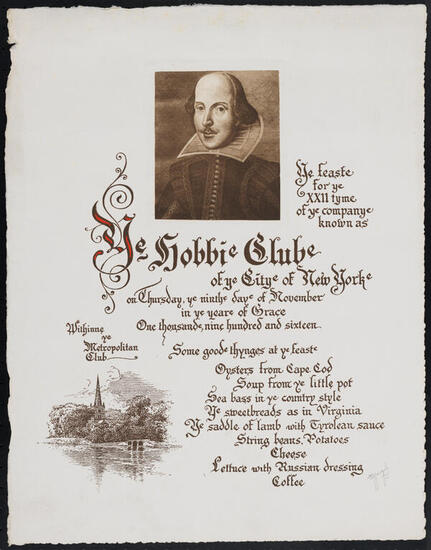 Ye feaste
for ye
XXII tyme
of ye companye
known as
Ye Hobbie Clube
of ye Citye of New Yorke
on Thursday, ye ninthe daye of November
in ye yeare of Grace
One thousande, nine hundred and sixteen
Withinne
ye
Metropolitan
Club
Some goode thynges at ye feaste
Oysters from Cape Cod
Soup from ye little pot
Sea bass in ye country style
Ye sweetbreads as in Virginia
Ye saddle of lamb with Tyrolean sauce
String beans, Potatoes
Cheese
Lettuce with Russian dressing
Coffee